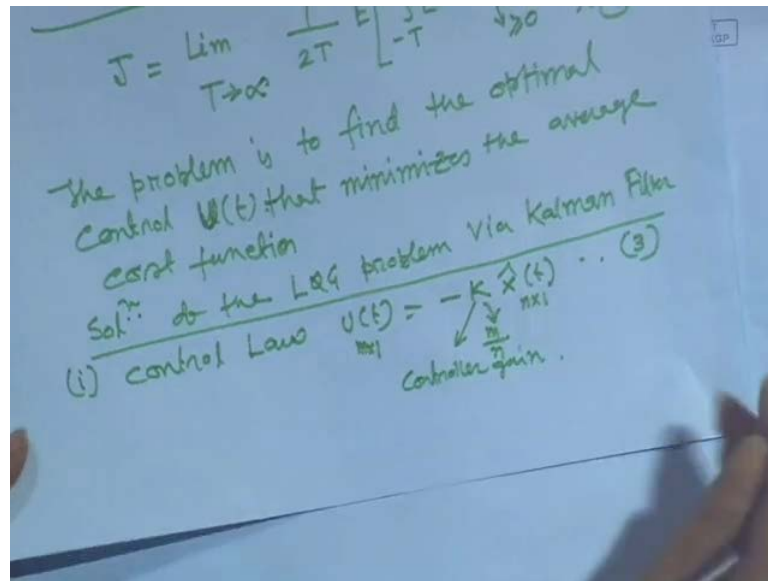 J = Lim 1/2T E[ -T ≥0
T→∞
The problem is to find the optimal
control U(t) that minimizes the average
cost function
Solⁿ: to the LQG problem via Kalman Filter
(i) control Law U(t) = -K x̂(t) .. (3)
m×1 m n×1
n
Controller gain.